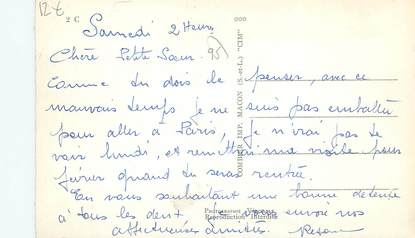 12 €
2 C
Samedi 2 Heures
95
Chère Petite Soeur
comme tu dois le penser, avec ce
mauvais temps je ne suis pas emballée
pour aller à Paris, je n'irai pas te
voir lundi, et remettrai ma visite pour
février quand tu seras rentrée.
En vous souhaitant une bonne détente
à tous les deux je vous envoie nos
affectueuses amitiés
000
COMBIER IMP. MACON (S.-et-L.) "CIM"
Reproduction Interdite